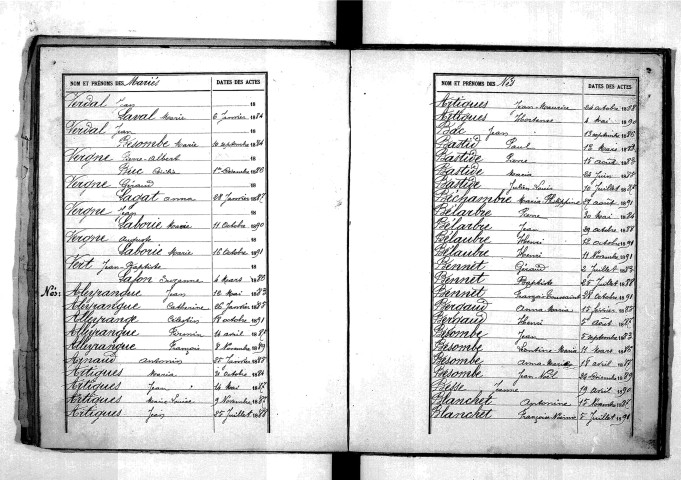 NOM ET PRÉNOMS DES Mariés DATES DES ACTES
Verdal Jean 18
Laval Marie 6 Janvier 1884
Verdal Jean 18
Bésombe Marie septembre 1884
Vergne Pierre-Albert 18
18
Vergne Géraud 18
Lagat Anna 28 Janvier 18
Vergne Jean 18
Laborie Marie 11 Octobre 1890
Vergne Auguste 18
Laborie Marie 16 Octobre 1891
Veit Jean-Baptiste 18
Lafon Suzanne 4 Mars 18
Nés: Alleyrangue Jean 12 Mai 1883
Alleyrangue Catherine 26 Janvier 1885
Alleyrangue Célestin 18 octobre 1891
Alleyrangue Firmin 14 avril 18
Alleyrangue François 8 Novembre 1889
Arnaud Antonin 25 Janvier 1888
Artigues Maria 2 octobre 1884
Artigues Jean 24 Mai 18
Artigues Marie-Louise 9 Novembre 18
Artigues Jean 25 Juillet 1888
NOM ET PRÉNOMS DES Nés DATES DES ACTES
Artigues Jean-Maurice 20 octobre 1888
Artigues Hortense 4 Mai 1890
Bac Jean 13 septembre 1886
Bastid Paul 12 Mars 1883
Bastide Pierre 15 août 18
Bastide Maria 22 Juin 18
Bastide Julien Louis 10 Juillet 18
Béchambre Maria Philippine 29 août 1891
Bélarbre Pierre 30 Mai 1884
Bélarbre Jean 29 octobre 1888
Bélaubre Henri 12 Octobre 1891
Bélaubre Henri 11 Novembre 1891
Bennet Géraud 2 Juillet 1883
Bennet Baptiste 25 Juillet 1888
Bennet François 28 octobre 1891
Bergaud Anna Maria 15 février 1885
Bergaud Henri 5 août 18
Bésombe Jean 5 septembre 1883
Bésombe Léontine-Maria 11 Mars 188
Bésombe Anna 18 avril 18
Bésombe Jean Noël 24 Décembre 1889
Besse Jeanne 19 avril 1890
Blanchet Antonine 15 Novembre 18
Blanchet 5 Juillet 1891